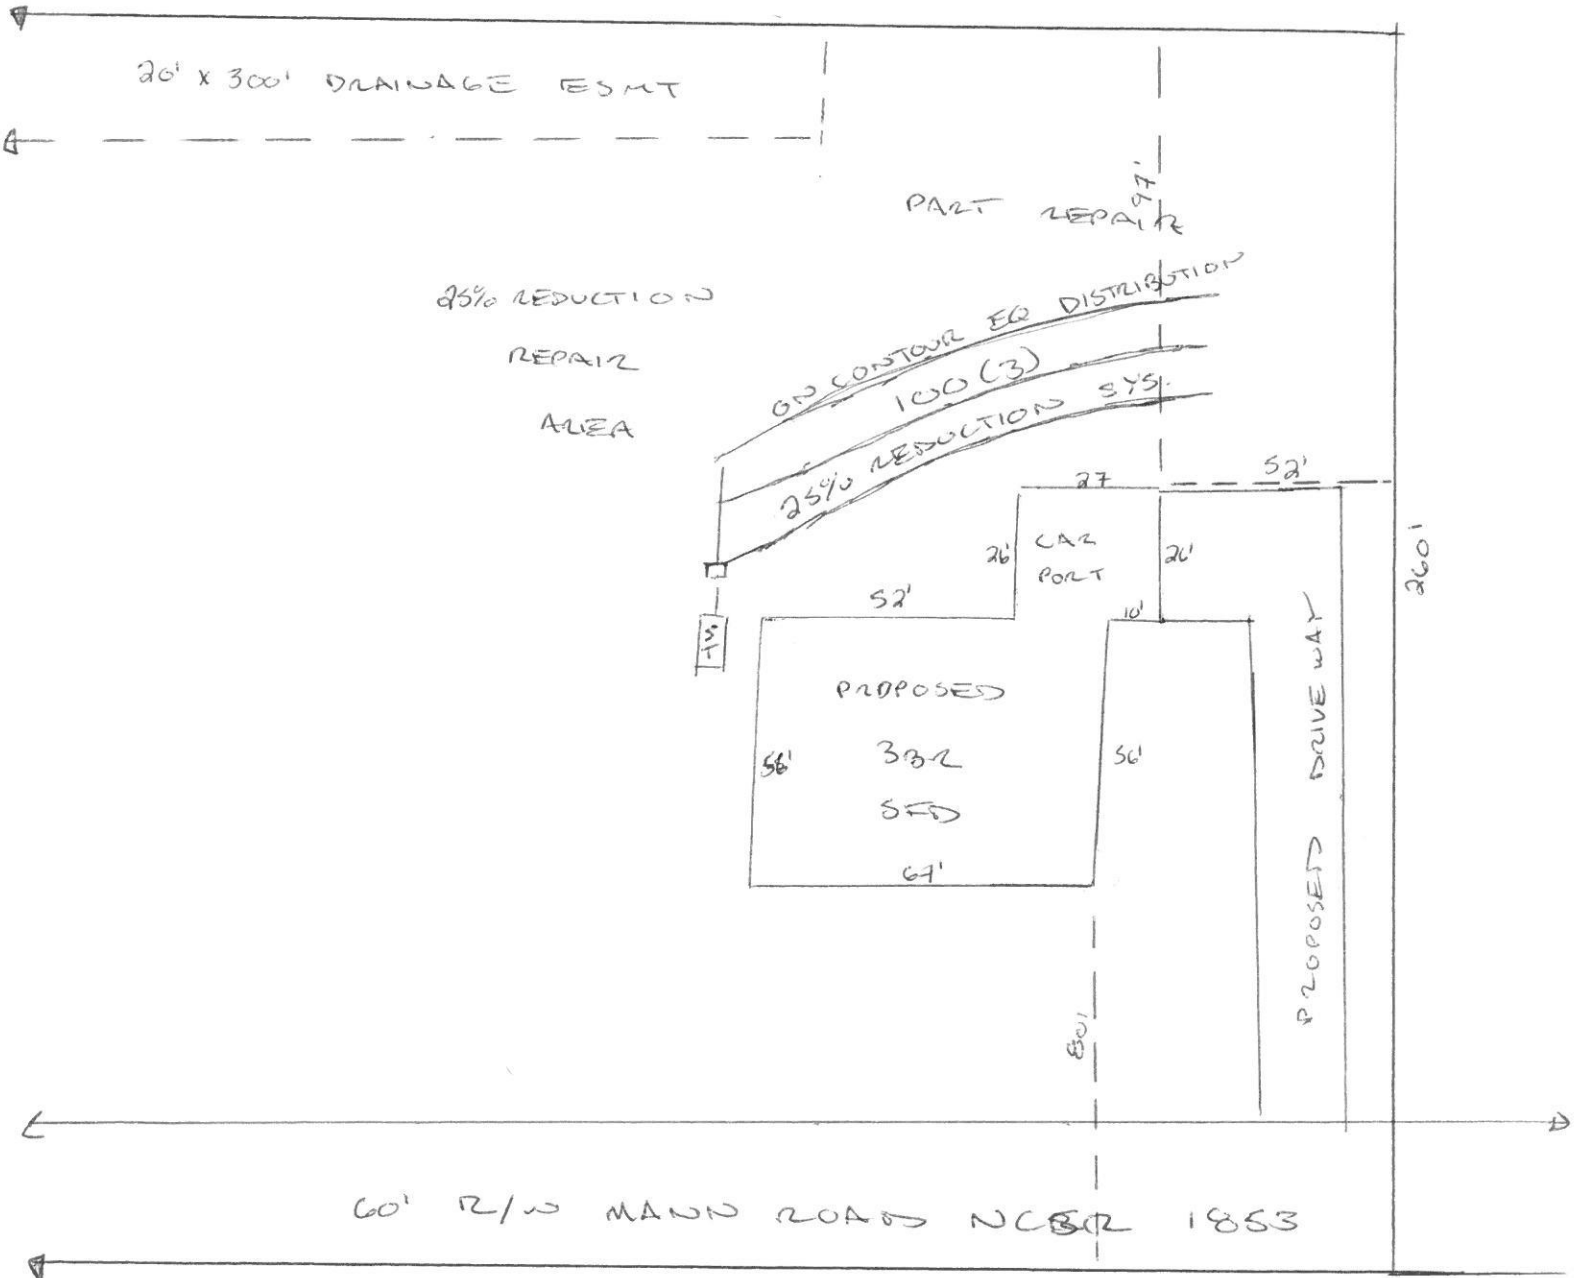 20' x 300' DRAINAGE ESMT
97'
PART REPAIR
25% REDUCTION
REPAIR
AREA
ON CONTOUR EQ DISTRIBUTION
100 (3)
25% REDUCTION SYS.
27
52'
26'
CAR
PORT
26'
52'
10'
260'
PROPOSED
3BR
SFD
56'
56'
67'
PROPOSED DRIVEWAY
80'
60' R/W MANN ROAD NCSR 1853